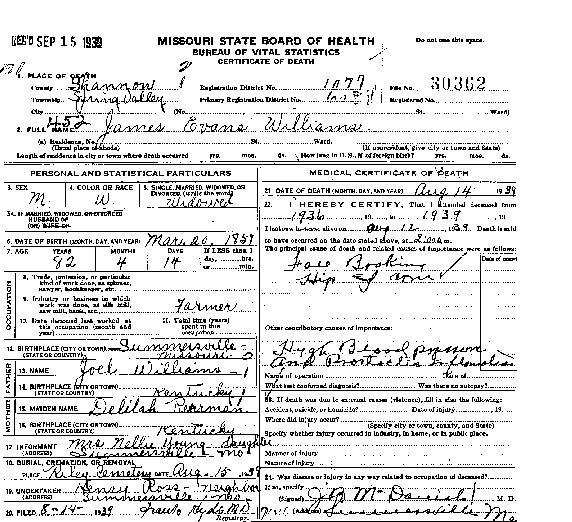 REC'D SEP 15 1939
MISSOURI STATE BOARD OF HEALTH
Do not use this space.
BUREAU OF VITAL STATISTICS
CERTIFICATE OF DEATH
1. PLACE OF DEATH
County Shannon
Registration District No. 1077
File No. 30362
Township Spring Valley
Primary Registration District No.
Registered No.
City
St. Ward)
2. FULL NAME James Evans Williams
(a) Residence, No. St. Ward.
(Usual place of abode) (If nonresident, give city or town and State)
Length of residence in city or town where death occurred yrs. mos. ds. How long in U. S., if of foreign birth? yrs. mos. ds.
PERSONAL AND STATISTICAL PARTICULARS
3. SEX M.
4. COLOR OR RACE W.
5. SINGLE, MARRIED, WIDOWED, OR DIVORCED (write the word) Widowed
5A. IF MARRIED, WIDOWED, OR DIVORCED
HUSBAND OF
(OR) WIFE OF
6. DATE OF BIRTH (MONTH, DAY, AND YEAR) Mar. 20, 1857
7. AGE YEARS 82 MONTHS 4 DAYS 14 If LESS than 1 day, hrs. or min.
OCCUPATION
8. Trade, profession, or particular kind of work done, as spinner, sawyer, bookkeeper, etc.
9. Industry or business in which work was done, as silk mill, saw mill, bank, etc. Farmer
10. Date deceased last worked at this occupation (month and year)
11. Total time (years) spent in this occupation
12. BIRTHPLACE (CITY OR TOWN) Summersville
(STATE OR COUNTRY) Missouri
FATHER
13. NAME Joel Williams
14. BIRTHPLACE (CITY OR TOWN)
(STATE OR COUNTRY) Kentucky
MOTHER
15. MAIDEN NAME Delilah Pearman
16. BIRTHPLACE (CITY OR TOWN)
(STATE OR COUNTRY) Kentucky
17. INFORMANT Mrs Nellie Young Daughter
(ADDRESS) Summersville Mo
18. BURIAL, CREMATION, OR REMOVAL
PLACE Riley Cemetery DATE Aug. 15 1939
19. UNDERTAKER Henry Ross - Neighbor
(ADDRESS) Summersville Mo.
20. FILED 8-14- 1939 Frank Hyde M.D.
Registrar.
MEDICAL CERTIFICATE OF DEATH
21. DATE OF DEATH (MONTH, DAY, AND YEAR) Aug 14 1939
22. I HEREBY CERTIFY, That I attended deceased from
1936, 19 to 1939, 19
I last saw him alive on Aug 12 1939 Death is said
to have occurred on the date stated above, at
The principal cause of death and related causes of importance were as follows:
Date of onset
Hip
Other contributory causes of importance:
High Blood pressure
And
Name of operation Date of
What test confirmed diagnosis? Was there an autopsy?
23. If death was due to external causes (violence), fill in also the following:
Accident, suicide, or homicide? Date of injury 19
Where did injury occur?
(Specify city or town, county, and State)
Specify whether injury occurred in industry, in home, or in public place.
Manner of injury
Nature of injury
24. Was disease or injury in any way related to occupation of deceased?
If so, specify
(Signed) M. D.
(Address) Summersville Mo